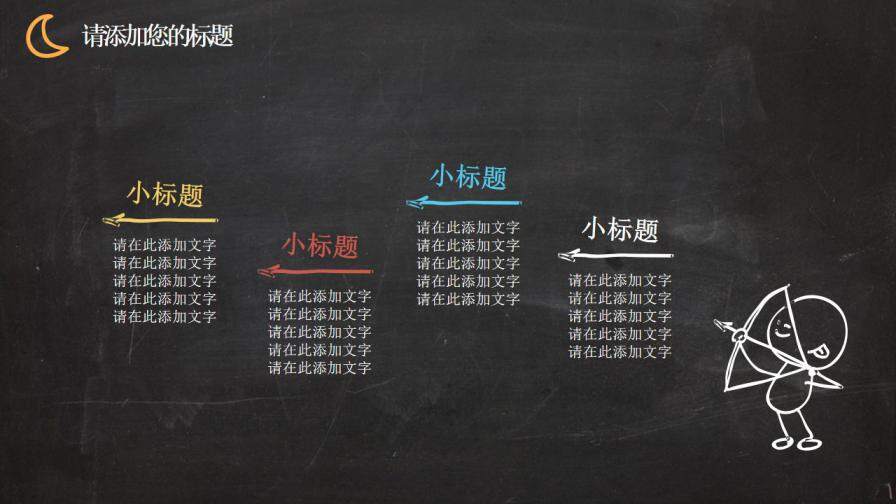 请添加您的标题
小标题
请在此添加文字
请在此添加文字
请在此添加文字
请在此添加文字
请在此添加文字
小标题
请在此添加文字
请在此添加文字
请在此添加文字
请在此添加文字
请在此添加文字
小标题
请在此添加文字
请在此添加文字
请在此添加文字
请在此添加文字
请在此添加文字
小标题
请在此添加文字
请在此添加文字
请在此添加文字
请在此添加文字
请在此添加文字